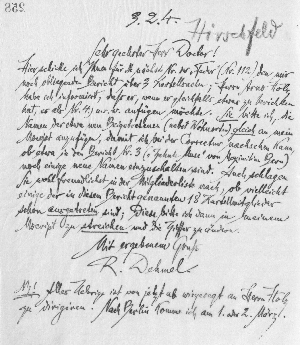 258
3.2.4.
Hirschfeld
Sehr geehrter Herr Doctor!
Hier schicke ich Ihnen für die nächste Nr. der (Nr. 112) den mir
noch obliegenden Bericht über 3 Kartellreisen. Herrn Arno Holz
habe ich informiert, daß er, wenn er gleichfalls etwas zu berichten
hat, es als (Nr. 4) anfügen möchte. Sie bitte ich, die
Namen der etwa neu Beigetretenen (nebst Wohnort) gleich an mein
Manuskript anzufügen, damit ich bei der Correctur nachsehen kann,
ob etwa in den Bericht Nr. 3 von Maximilian Bern)
noch einige neue Namen einzuschalten sind. Auch schlagen
Sie wohl freundlichst in der Mitgliederliste nach, ob vielleicht
einige der in diesen Bericht genannten 18 Kartellmitglieder
schon ausgetreten sind; diese bitte ich dann in meinem
Manuscript zu streichen und die Ziffer zu ändern.
Mit ergebenem Gruß
R. Dehmel.
NB! Alles Uebrige ist von jetzt ab an Herrn Holz
zu dirigiren. Nach Berlin komme ich am 1. oder 2. März.